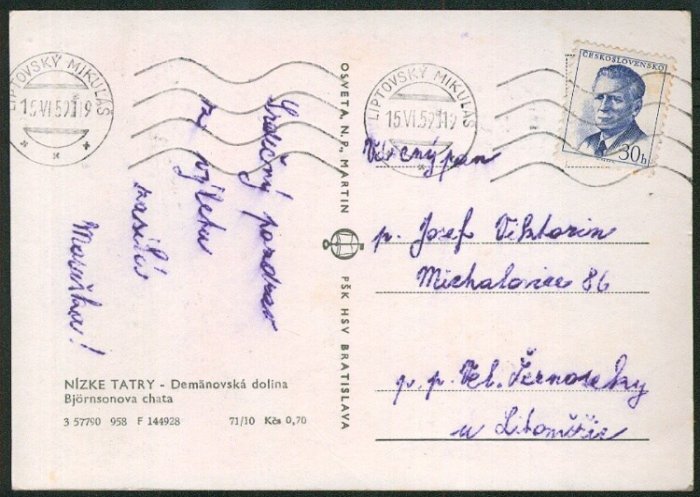 LIPTOVSKÝ MIKULÁŠ
15.VI.59-19
LIPTOVSKÝ MIKULÁŠ
15.VI.59-19
ČESKOSLOVENSKO
30h
Srdečný pozdrav
z výletu
zasílá
Maruška!
NÍZKE TATRY - Demänovská dolina
Björnsonova chata
3 57790 958 F 144928 71/10 Kčs 0,70
OSVETA, N. P., MARTIN
PŠK HSV BRATISLAVA
Vážený pan
p. Josef Viktorin
Michalovice 86
p. p. Vel. Žernoseky
u Litoměřic